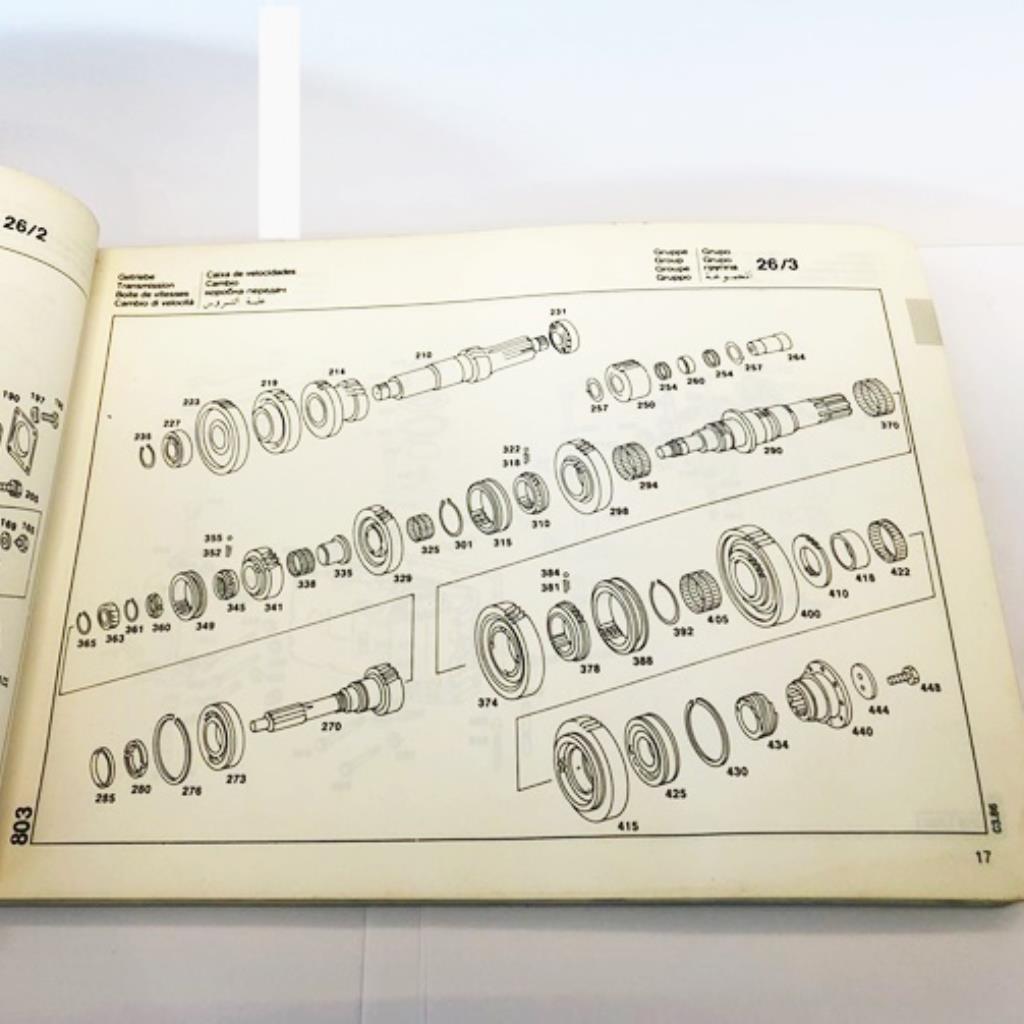 26/2
190
197
169
Getriebe
Transmission
Boîte de vitesses
Cambio di velocità
Caixa de velocidades
Cambio
коробка передач
علبة التروس
Gruppe
Group
Groupe
Gruppo
Grupo
Grupo
группа
المجموعة
26/3
231
210
214
219
223
227
235
264
257
254
260
254
250
257
370
290
322
318
294
298
310
315
301
325
329
335
338
355
352
341
345
349
360
361
363
365
422
418
410
400
384
381
405
392
388
378
374
270
273
276
280
285
448
444
440
434
430
425
415
803
03.86
17